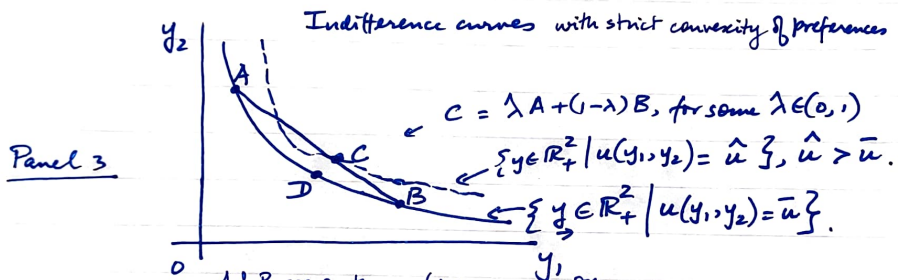 Indifference curves with strict convexity of preferences
y₂
A
C = λA+(1-λ)B, for some λ∈(0,1)
Panel 3
C
{y∈ℝ²₊ | u(y₁,y₂) = û }, û > ū.
D
B
{ y ∈ ℝ²₊ | u(y₁,y₂)=ū}.
0
y₁